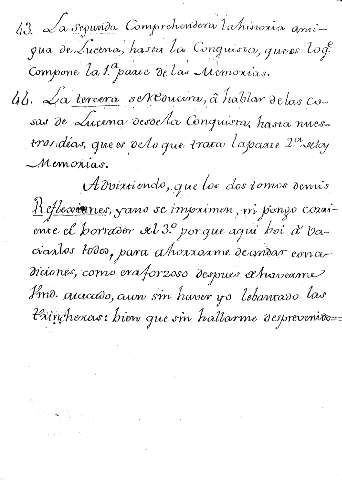 43. La segunda Comprehenderá la historia anti-
gua de Lucena, hasta la Conquista, que es lo q.e
Compone la 1.a parte de las Memorias.
44. La tercera se reducira, á hablar de las co-
sas de Lucena desde la Conquista, hasta nues-
tros dias, que es de lo que trata la parte 2.a de las
Memorias.
Advirtiendo, que los dos tomos de mis
Reflexiones, ya no se imprimen, ni pongo corri-
ente el borrador del 3.o porque aqui boi á va-
ciarlos todos, para ahorrarme de andar con a-
diciones, como era forzoso despues de haverme
Vmd. atacado, aun sin haver yo lebantado las
trincheras: bien que sin hallarme desprevenido=